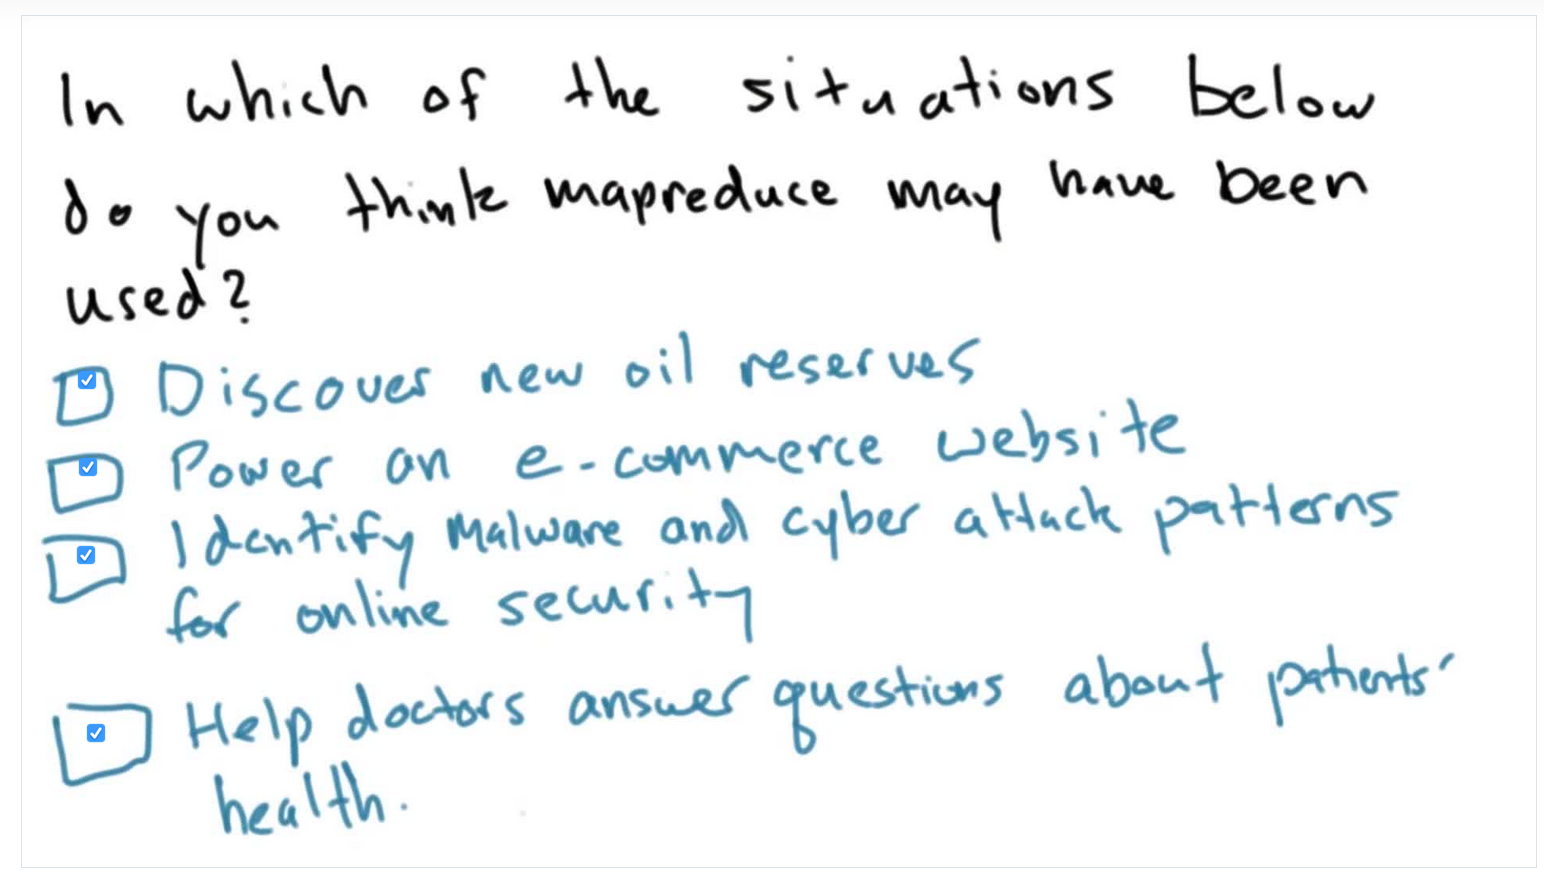 In which of the situations below
do you think mapreduce may have been
used?
Discover new oil reserves
Power an e-commerce website
Identify Malware and cyber attack patterns
for online security
Help doctors answer questions about patients'
health.